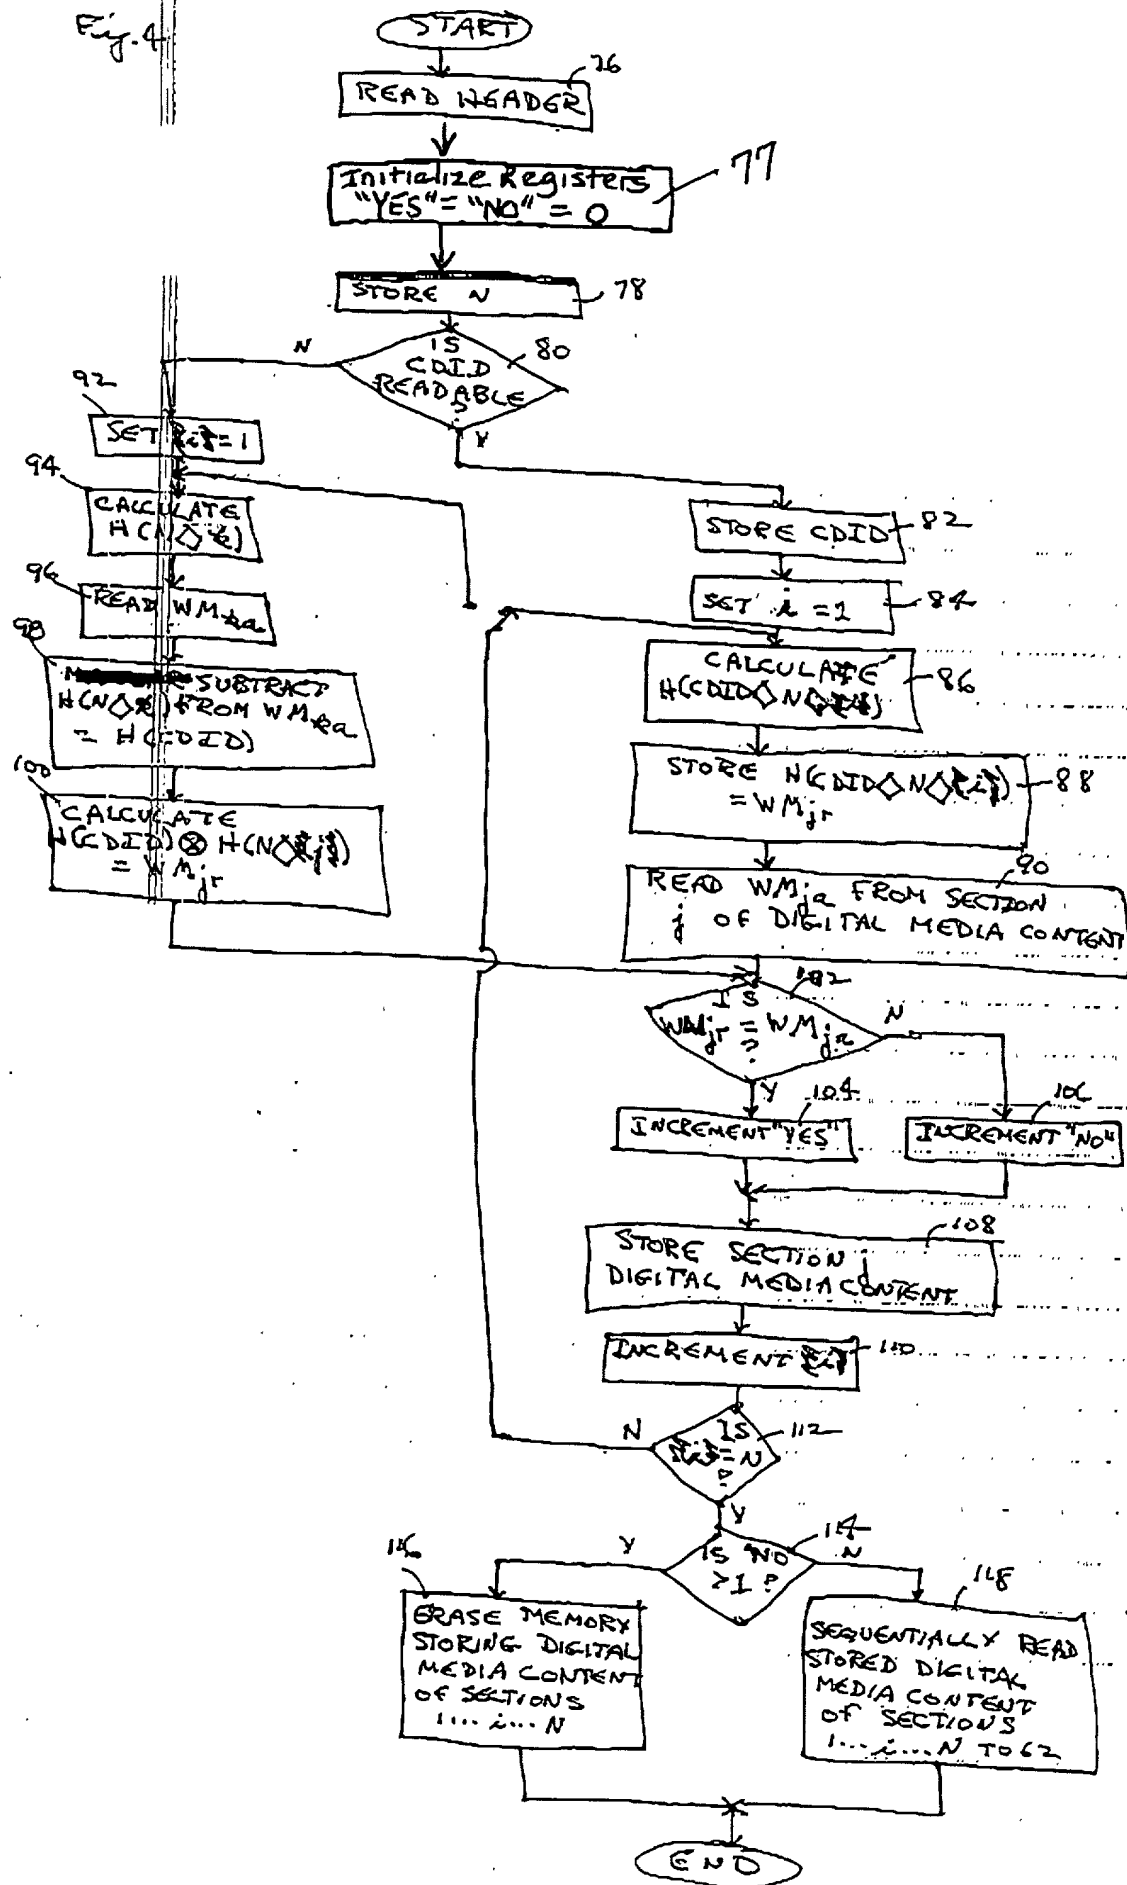 Fig. 4
START
76
READ HEADER
77
Initialize Registers
"YES" = "NO" = 0
78
STORE N
80
IS
CDID
READABLE
?
N
Y
92
SET = 1
94
CALCULATE
96
READ WM
98
SUBTRACT
FROM WM
= H(CDID)
100
CALCULATE
H(CDID) ⊗ H(N◇
= WMjr
82
STORE CDID
84
SET i = 1
86
CALCULATE
H(CDID◇N◇
88
STORE H(CDID◇N◇
= WMjr
90
READ WMja FROM SECTION
j OF DIGITAL MEDIA CONTENT
102
IS
WMjr = WMja
?
N
Y
104
INCREMENT "YES"
106
INCREMENT "NO"
108
STORE SECTION j
DIGITAL MEDIA CONTENT
110
INCREMENT
112
IS
= N
?
N
Y
114
IS "NO
>1 ?
Y
N
116
ERASE MEMORY
STORING DIGITAL
MEDIA CONTENT
OF SECTIONS
1....i....N
118
SEQUENTIALLY READ
STORED DIGITAL
MEDIA CONTENT
OF SECTIONS
1....i....N TO 62
END